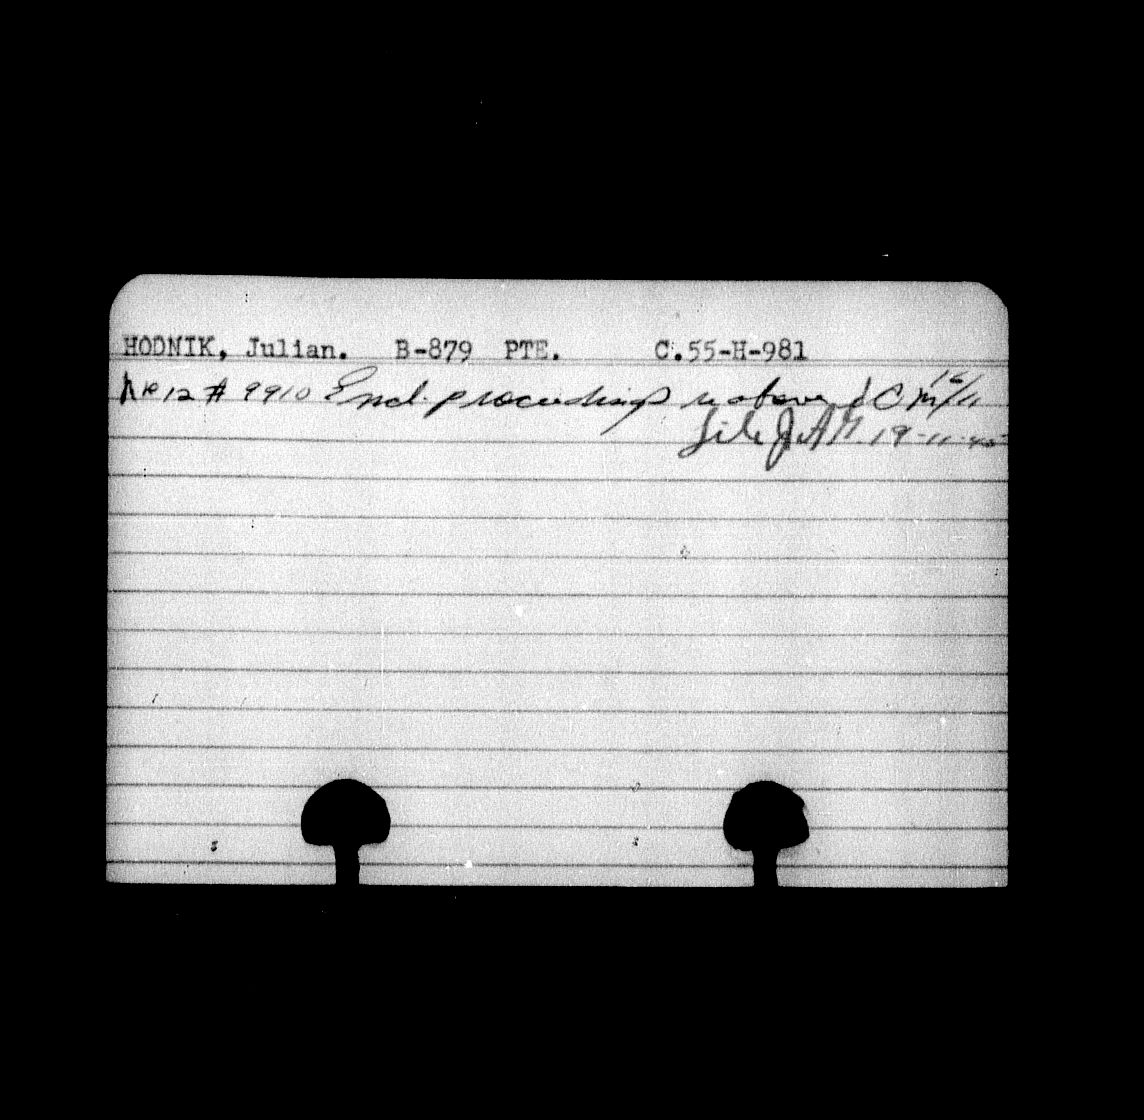 HODNIK, Julian. B-879 PTE. C.55-H-981
12 # 9910 Encl. proceedings r above C M 16/11
File J.A.G. 19-11-45